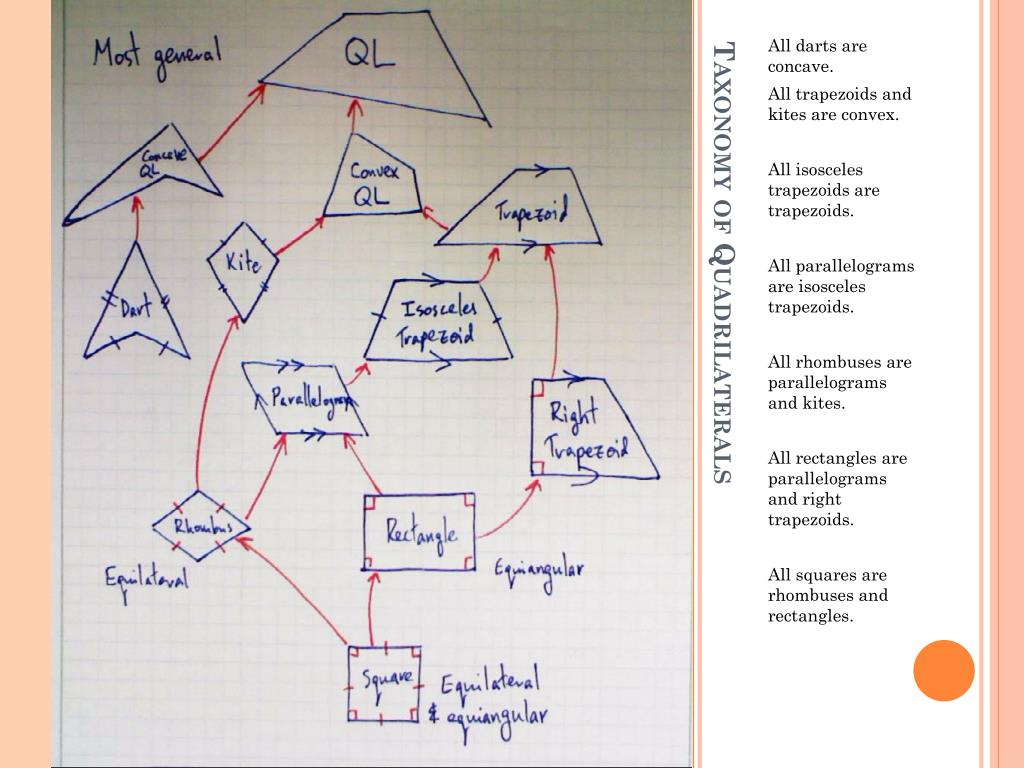 Most general
QL
Concave
QL
Convex
QL
Trapezoid
Kite
Dart
Isosceles
Trapezoid
Parallelogram
Right
Trapezoid
Rhombus
Rectangle
Equilateral
Equiangular
Square
Equilateral
& equiangular
TAXONOMY OF QUADRILATERALS
All darts are
concave.
All trapezoids and
kites are convex.
All isosceles
trapezoids are
trapezoids.
All parallelograms
are isosceles
trapezoids.
All rhombuses are
parallelograms
and kites.
All rectangles are
parallelograms
and right
trapezoids.
All squares are
rhombuses and
rectangles.